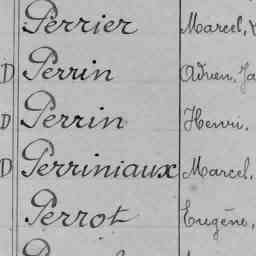 Perrier Marcel,
D Perrin Adrien, Ja
D Perrin Henri.
D Perriniaux Marcel.
Perrot Eugène,